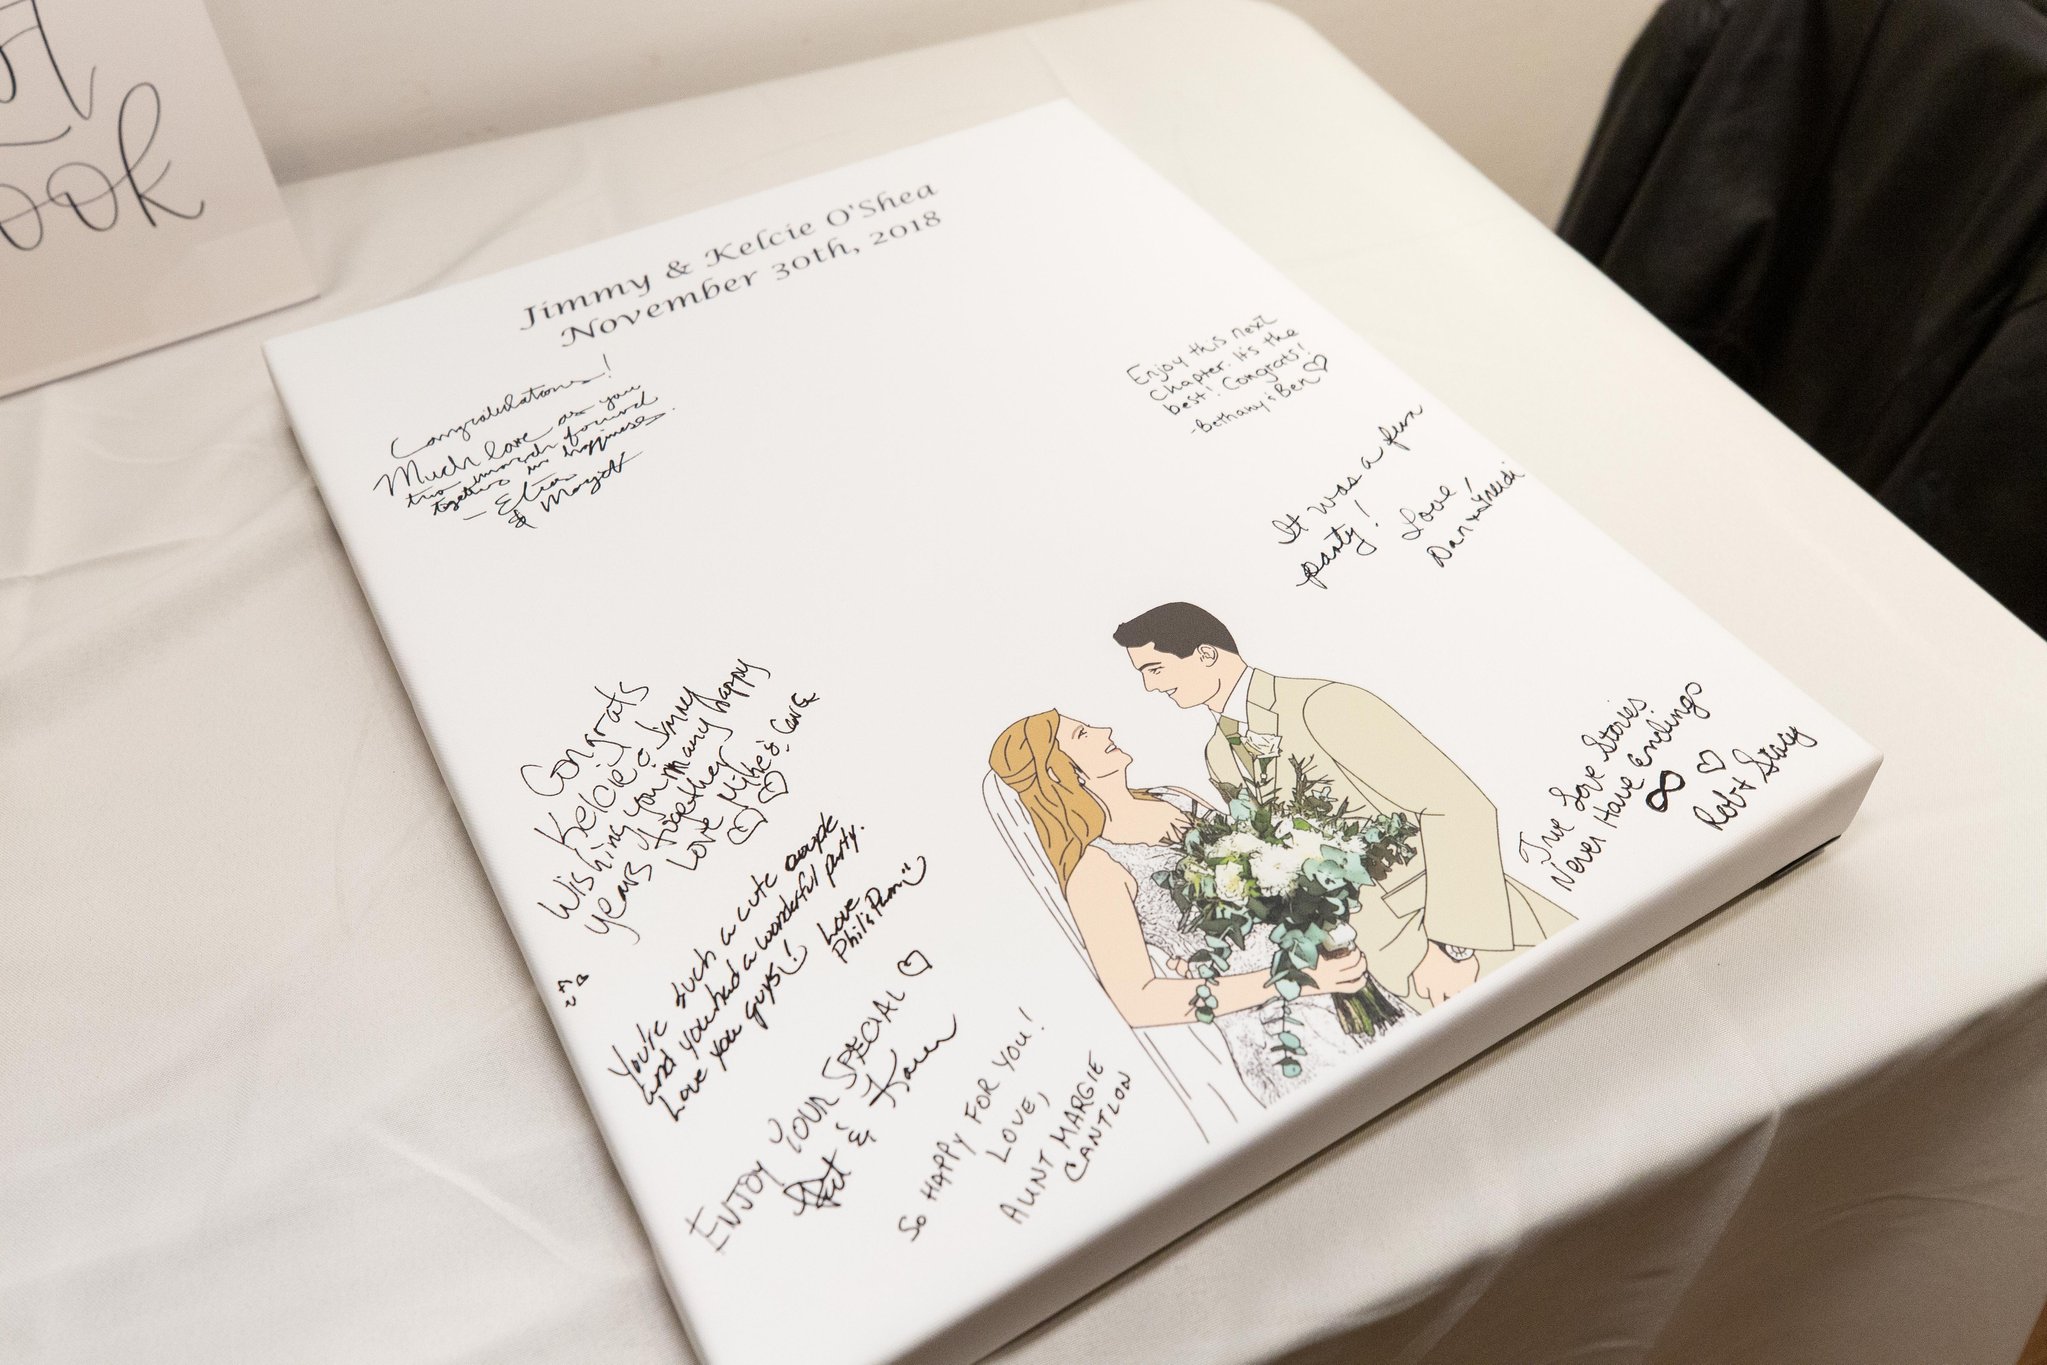 ook
Jimmy & Kelcie O'Shea
November 30th, 2018
Congratulations!
Much love as you
two march forward
together in happiness.
- Elias
& Margitt
Enjoy this next
Chapter. It's the
best! Congrats!
-Bethany & Ben
It was a fun
party!
Love,
Dan
Congrats
Kelcie & Jimmy
Wishing you many happy
years together
Love Mike &
You're such a cute couple
and you had a wonderful party.
Love you guys!
Love
Phil
ENJOY YOUR SPECIAL
& Karen
SO HAPPY FOR YOU!
LOVE,
AUNT MARGIE
CANTLON
True Love Stories
Never Have Endings
∞
Rob + Stacy